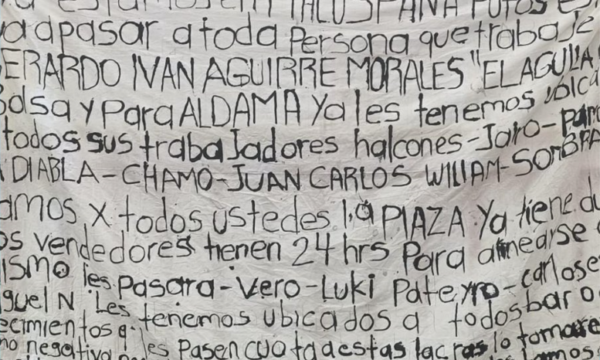 a estamos en TALCUSPANA PUTOS es
a apasar a toda Persona que trabaje
ERARDO IVAN AGUIRRE MORALES "EL AGUILA
Bolsa y Para ALDAMA Ya les tenemos ubica
todos sus trabaJadores halcones-Jato-pan
DIABLA-CHAMO-JUAN CARLOS WILLIAM-SOMBRA
amos x todos ustedes la PlAZA Ya tiene du
os vendedores tienen 24 hrs Para alinearse
ismo les Pasara-Vero-Luki Pate yro-carlose
guel N Les tenemos ubicados a todos baro
ecimientos q les Pasen cuota destas lacras lo tomare
no negativa